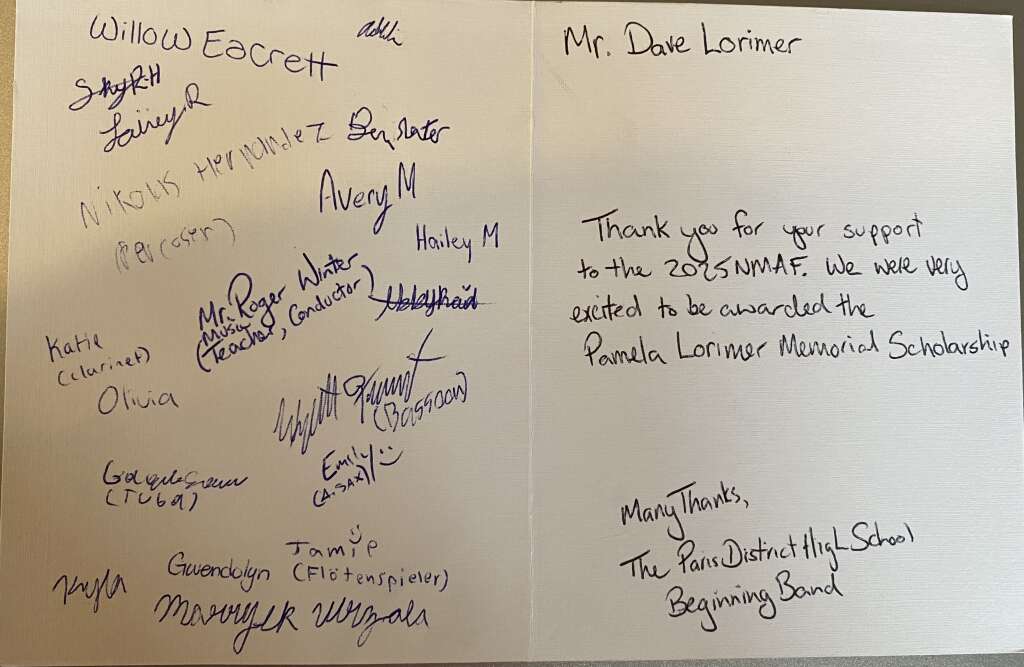 Willow Eacrett
Nikolus Hernandez
Ben Slater
Avery M
Hailey M
Mr. Roger Winter
(Music
Teacher, Conductor)
Katie
(clarinet)
Olivia
Wyatt
(Bassoon)
Emily
(A. SAX)
(TUba)
Jamie
Gwendolyn (Flötenspieler)
Kyla
Mr. Dave Lorimer
Thank you for your support
to the 2025 NMAF. We were very
excited to be awarded the
Pamela Lorimer Memorial Scholarship
Many Thanks,
The Paris District High School
Beginning Band